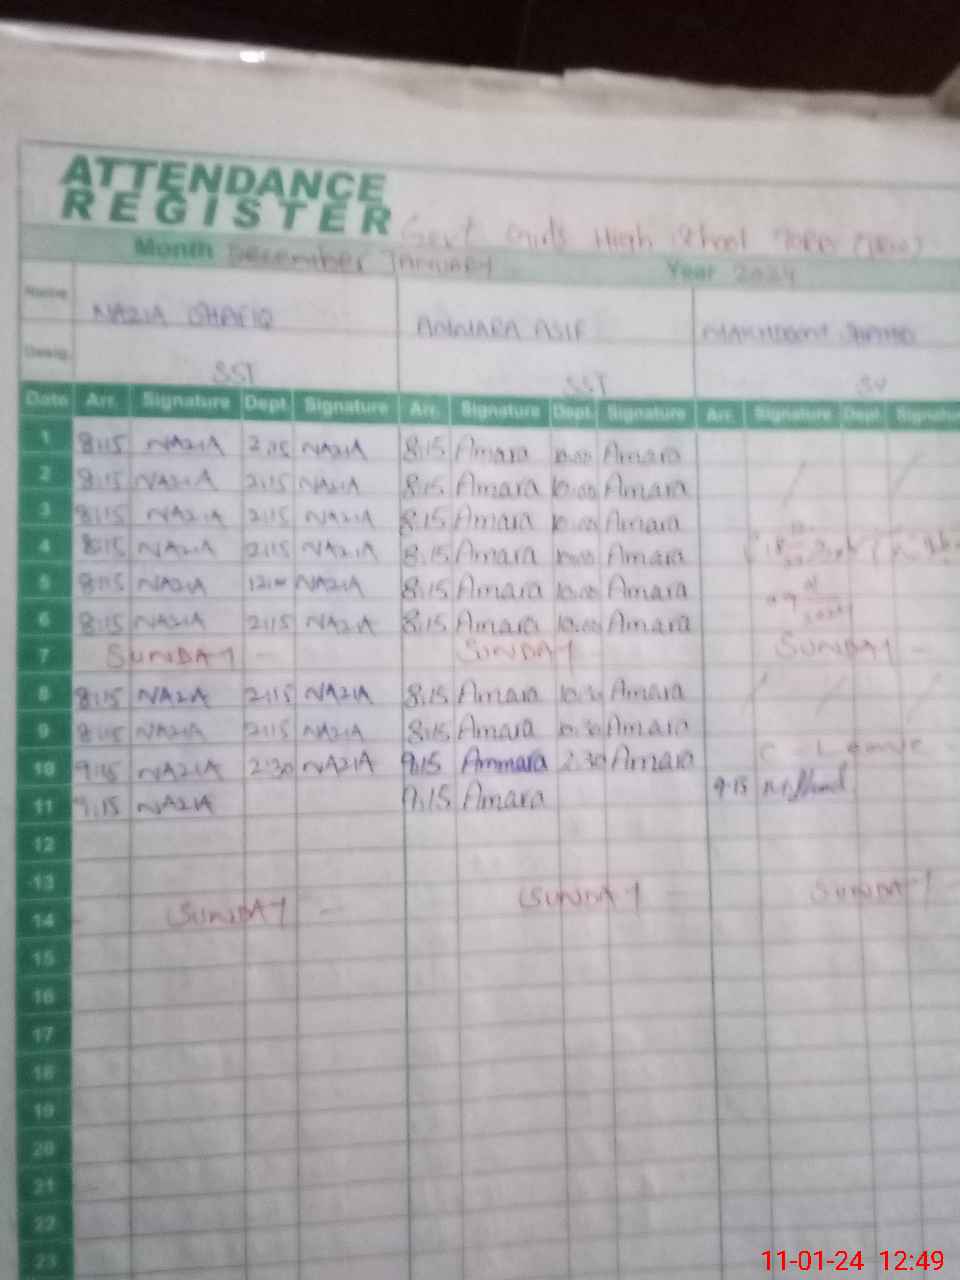 ATTENDANCE
REGISTER
Govt Girls High School
Month December January Year 2024
Name NAZIA SHAFIQ AMMARA ASIF
Desig. SST SST
Date Arr. Signature Dept. Signature Arr. Signature Dept. Signature Arr. Signature Dept. Signatu
1 8:15 NAZIA 2:15 NAZIA 8:15 Amara 10:00 Amara
2 8:15 NAZIA 2:15 NAZIA 8:15 Amara 10:00 Amara
3 8:15 NAZIA 2:15 NAZIA 8:15 Amara 10:00 Amara
4 8:15 NAZIA 2:15 NAZIA 8:15 Amara 10:00 Amara
5 8:15 NAZIA 12:00 NAZIA 8:15 Amara 10:00 Amara
6 8:15 NAZIA 2:15 NAZIA 8:15 Amara 10:00 Amara
7 SUNDAY - SUNDAY SUNDAY -
8 8:15 NAZIA 2:15 NAZIA 8:15 Amara 10:30 Amara
9 8:15 NAZIA 2:15 NAZIA 8:15 Amara 10:30 Amara
10 9:15 NAZIA 2:30 NAZIA 9:15 Ammara 2:30 Amara C - Leave
11 9:15 NAZIA 9:15 Amara 9:15
12
13
14 SUNDAY - SUNDAY - SUNDAY -
15
16
17
18
19
20
21
22
23
11-01-24 12:49